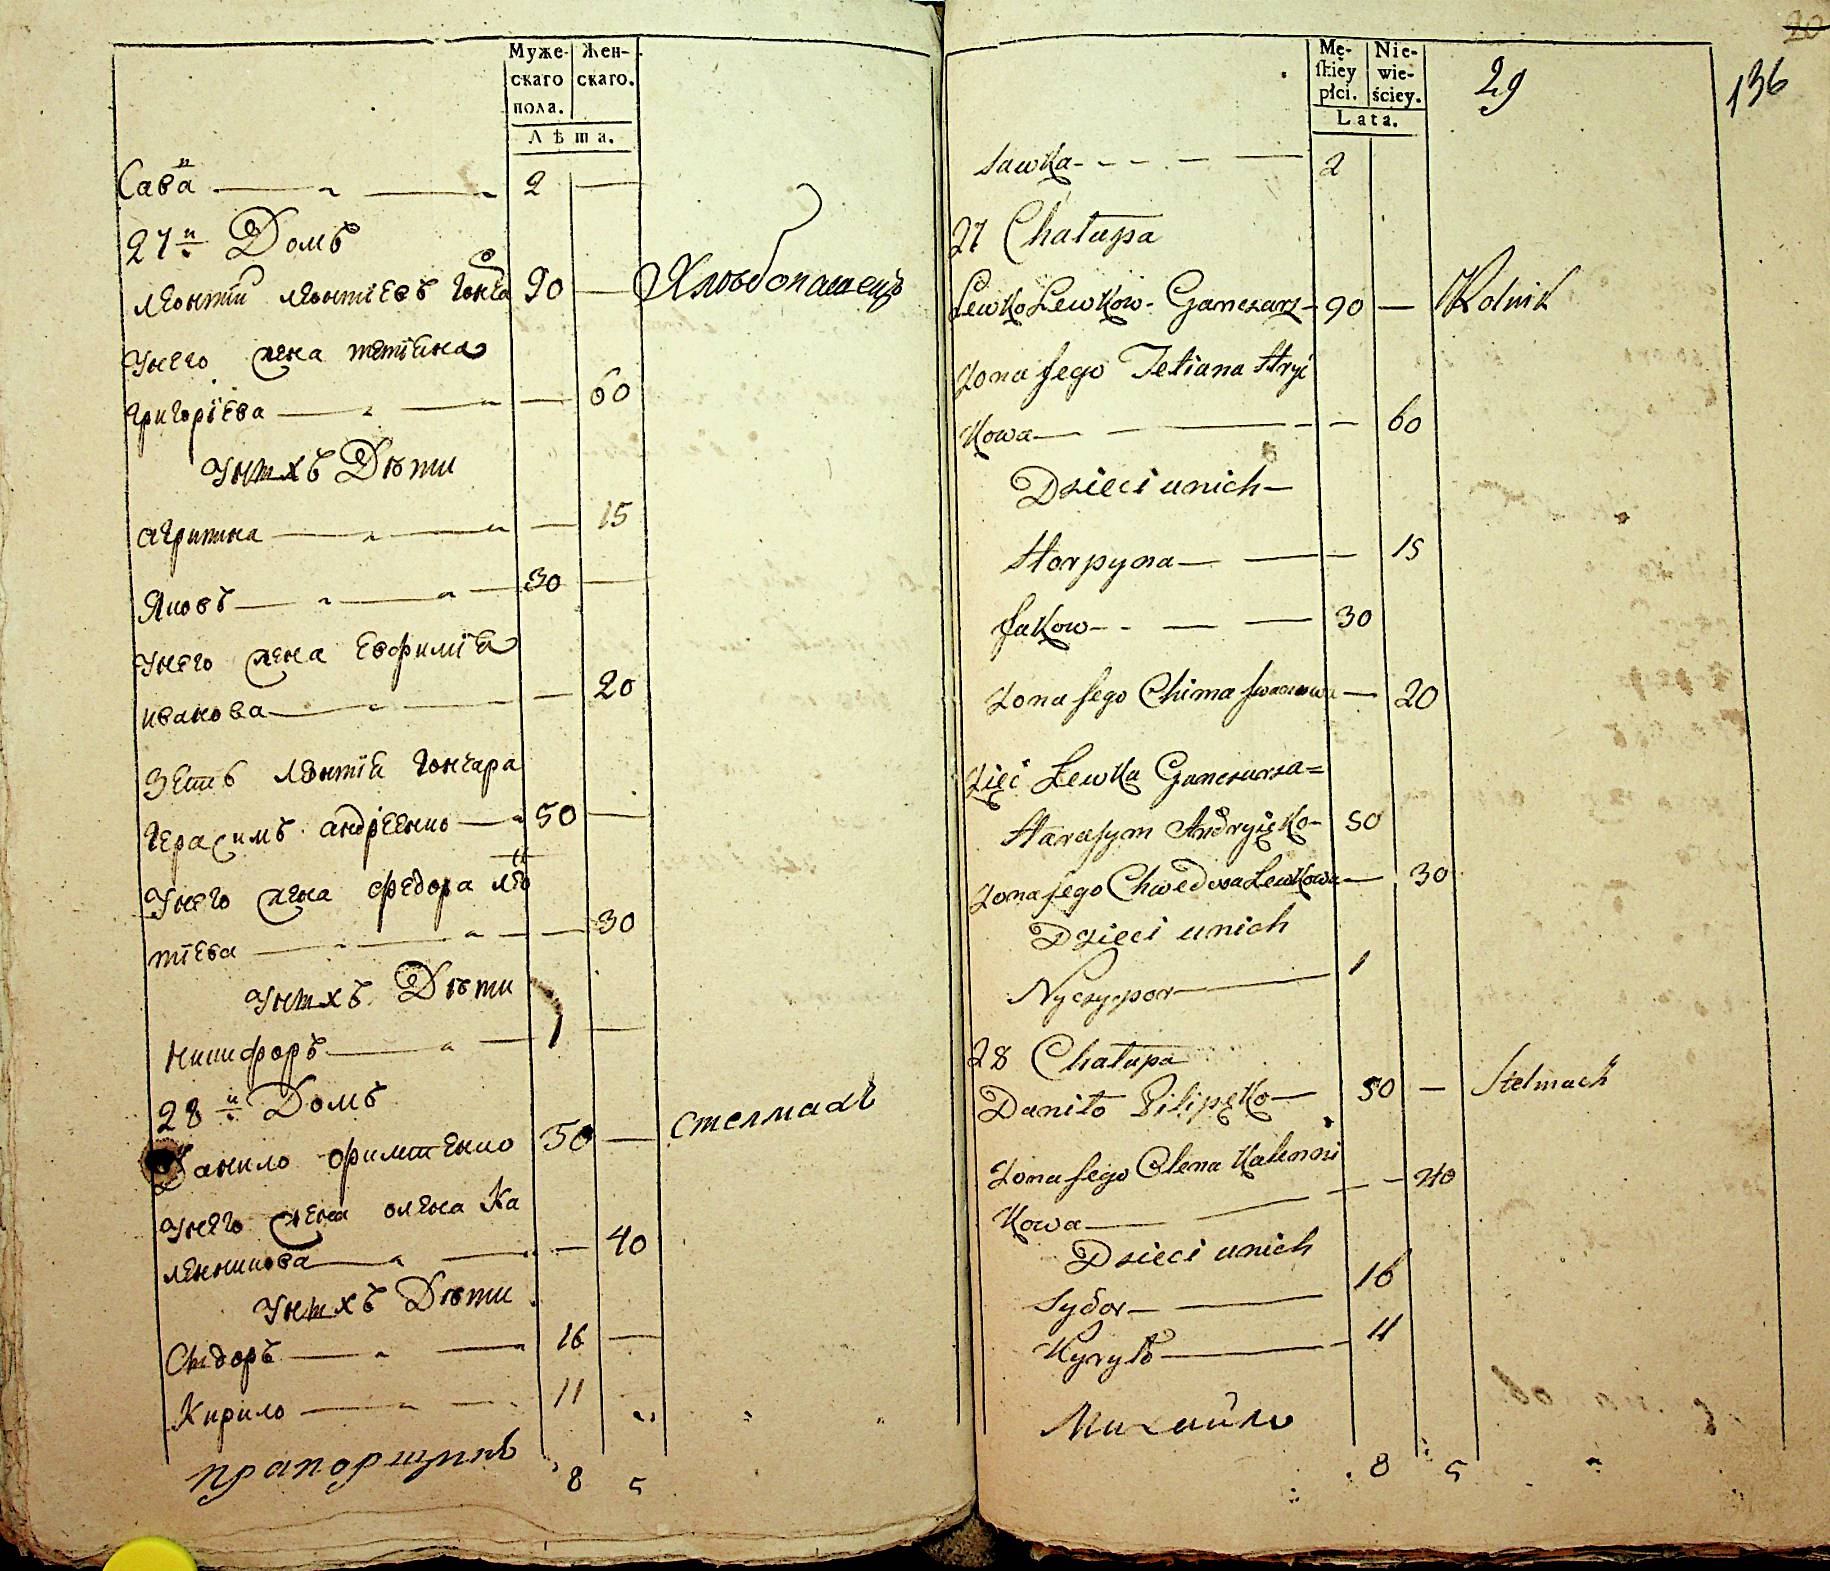 Муже- Жен-
скаго скаго.
пола.
Лѣта.
Сава 2
27 й Домъ
Леонтій Леонтіевъ Гонча 90 Хлѣбопашецъ
Унего жена тетіяна
григоріева 60
Унихъ Дѣти
агрипина 15
Яковъ 30
Унего жена Евфимія
иванова 20
Зеть Леонтія Гончара
Герасимъ андрѣенко 50
Унего жена федора лео
тіева 30
Унихъ Дѣти
Никифоръ 1
28 й Домъ
Данило филипенко 50 Стелмахъ
Унего жена олена Ка
ленникова 40
Унихъ Дѣти
Сидоръ 16
Кирило 11
прапорщикъ
8 5
20
Mę- Nie-
skiey wie-
płci. ściey.
Lata.
29
136
Sawka 2
27 Chałupa
Lewko Lewkow Ganczarz 90 Rolnik
Żona Jego Tetiana Hryi
Kowa 60
Dzieci unich
Horpyna 15
Jakow 30
Żona Jego Chima Iwanowa 20
Zięć Lewka Ganczarza
Harasym Andryięko 50
Żona Jego Chwedora Lewkowa 30
Dzieci unich
Nyczypor 1
28 Chałupa
Daniło Pilipęko 50 Stelmach
Żona Jego Olena Kalenni
Kowa 40
Dzieci unich
Sydor 16
Kyryło 11
Михайло
8 5